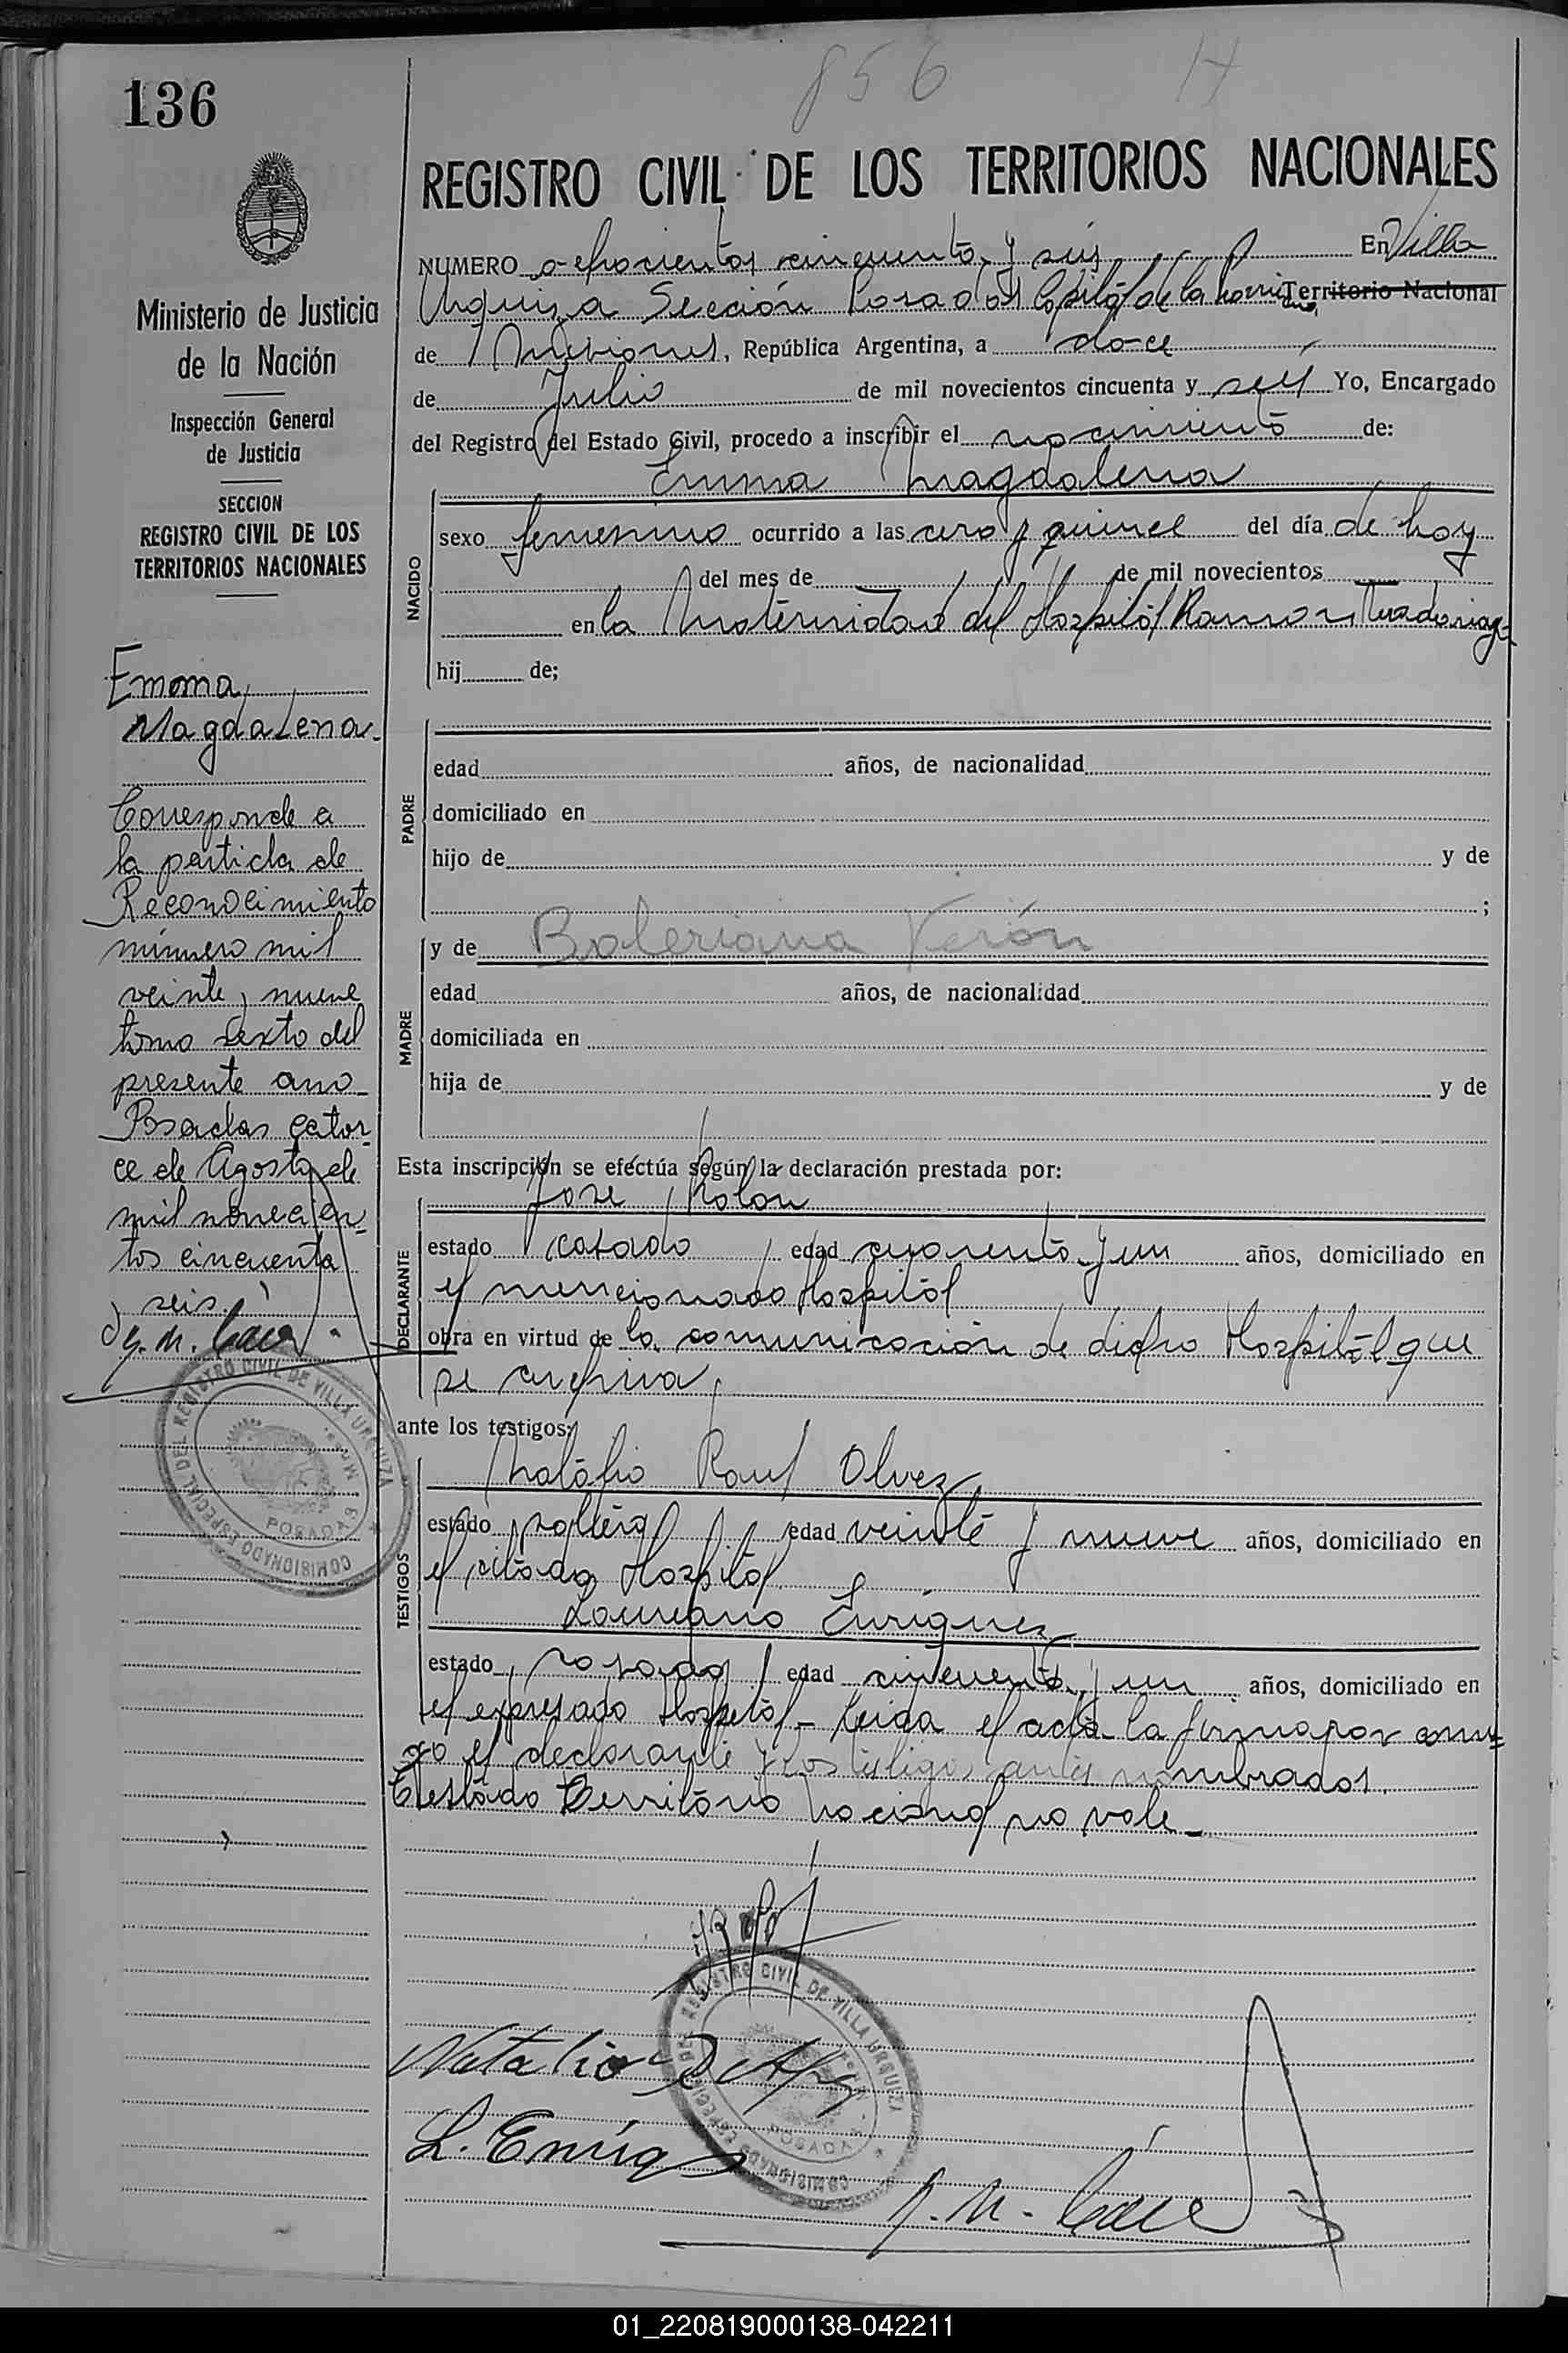 856 H
136
REGISTRO CIVIL DE LOS TERRITORIOS NACIONALES
NUMERO ochocientos cincuenta y seis En Villa
Urquiza Sección Posadas Capital de la Territorio Nacional
de Misiones, República Argentina, a doce
de Julio de mil novecientos cincuenta y seis Yo, Encargado
del Registro del Estado Civil, procedo a inscribir el nacimiento de:
Emma Magdalena
NACIDO
sexo femenino ocurrido a las cero y quince del día de hoy
del mes de de mil novecientos
en la Maternidad del Hospital Ramon Madariaga
hij de;
PADRE
edad años, de nacionalidad
domiciliado en
hijo de y de
;
MADRE
y de Baleriana Verón
edad años, de nacionalidad
domiciliada en
hija de y de
Esta inscripción se efectúa según la declaración prestada por:
DECLARANTE
Jose Rolon
estado casado edad cuarenta y un años, domiciliado en
el mencionado Hospital
obra en virtud de la comunicación de dicho Hospital que
se archiva
ante los testigos:
TESTIGOS
Natalio Raul Olvez
estado soltero edad veinte y nueve años, domiciliado en
el citado Hospital
Laureano Enriquez
estado casado edad cincuenta y un años, domiciliado en
el expresado Hospital - Leida el acta la firma por conmi=
go el declarante y los testigos antes nombrados.
Testado Territorio Nacional no vale -
Natalio R
L. Enriq
Ministerio de Justicia
de la Nación
Inspección General
de Justicia
SECCION
REGISTRO CIVIL DE LOS
TERRITORIOS NACIONALES
Emma,
Magdalena.
Corresponde a
la partida de
Reconocimiento
número mil
veinte y nueve
tomo sexto del
presente ano
Posadas cator-
ce de Agosto de
mil novecien-
tos cincuenta
y seis.
COMISIONADO ESPECIAL DEL REGISTRO CIVIL DE VILLA URQUIZA
POSADAS
COMISIONADO ESPECIAL DEL REGISTRO CIVIL DE VILLA URQUIZA
POSADAS
01_220819000138-042211